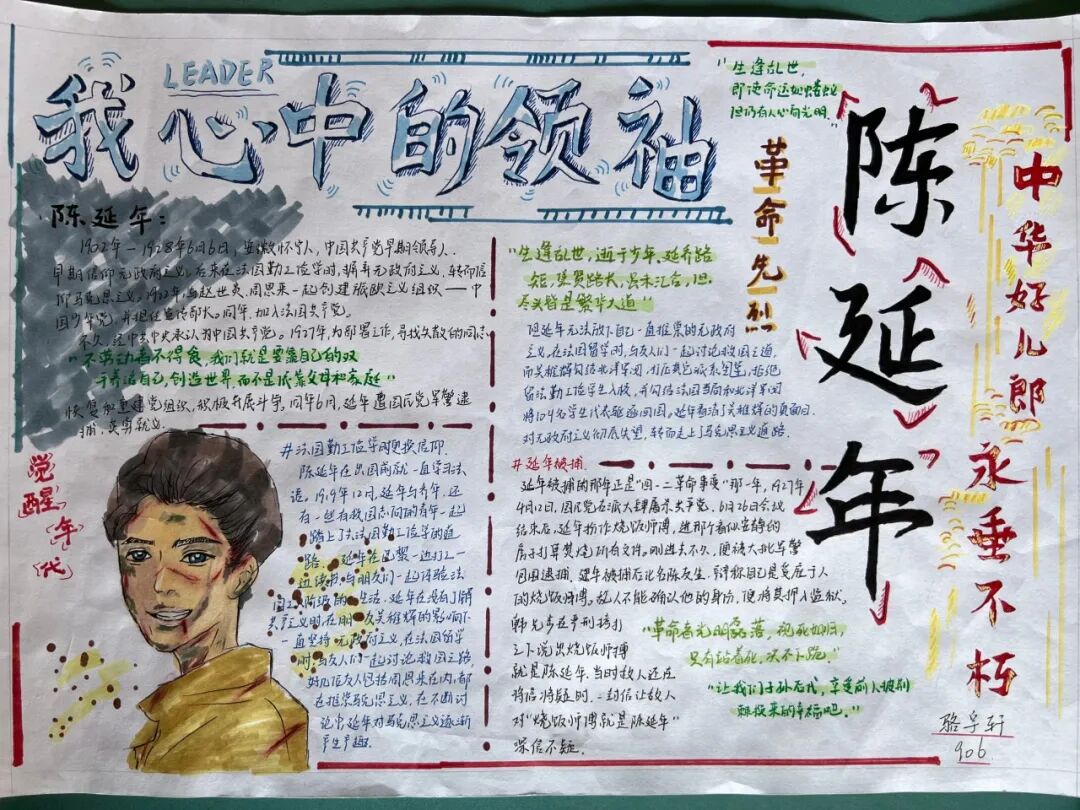 LEADER
我心中的领袖
"生逢乱世,
即使命运如蝼蚁
但仍有人心向光明."
革命先烈
陈延年
中华好儿郎
永垂不朽
陈延年:
早期信仰无政府主义,后来在法国勤工俭学时,摒弃无政府主义,转而信
仰马克思主义。1922年,与赵世炎、周恩来一起创建旅欧主义组织——中
国少年党,并担任宣传部长。同年,加入法国共产党。
不久,经中共中央承认为中国共产党。1927年,为部署工作,寻找失散的同志
"不劳动者不得食,我们就是要靠自己的双
手养活自己,创造世界,而不是依靠父母和家庭"
恢复和重建党组织,积极开展斗争。同年6月,延年遭国民党军警逮
捕,英勇就义.
觉醒年代
"生逢乱世,逝于少年,延乔路
短,集贤路长,虽未汇合,但
尽头皆是繁华大道"
陈延年无法放下自己一直推崇的无政府
主义,在法国留学时,与友人们一起讨论救国之道,
留法勤工俭学生入校,并勾结法国当局和北洋军阀
将104名学生代表驱逐回国,延年看清了吴稚辉的真面目
对无政府主义彻底失望,转而走上了马克思主义道路.
#法国勤工俭学时更换信仰.
陈延年在出国前就一直学习法
语,1919年12月,延年与乔年,还
有一些有救国志向的青年一起
踏上了去法国勤工俭学的道
路。延年在巴黎一边打工一
边读书,与朋友们一起体验法
国工人阶级的生活,延年在没有了解
共产主义时,在朋友吴稚辉的影响下
一直坚持无政府主义,在法国留学
时,与友人们一起讨论救国之路,
好几位友人包括周恩来在内,都
在推崇马克思主义,在不断讨
论中延年对马克思主义逐渐
产生兴趣.
#延年被捕.
延年被捕的那年正是"四·一二革命事变"那一年,1927年
4月12日,国民党右派大肆屠杀共产党,6月26日会议
结束后,延年扮作烧饭师傅,进那个看似安静的
房子打算焚烧所有文件。刚进去不久,便被大批军警
包围逮捕。延年被捕后化名陈友生,辩称自己是受雇于人
的烧饭师傅,敌人不能确认他的身份,便将其押入监狱。
韩先步在严刑拷打
之下说出烧饭师傅
就是陈延年,当时敌人还在
将信将疑时,一封信让敌人
对"烧饭师傅就是陈延年"
深信不疑.
"革命者光明磊落,视死如归,
只有站着死,决不下跪."
"让我们子孙后代,享受前人披荆
斩棘来的幸福吧."
906